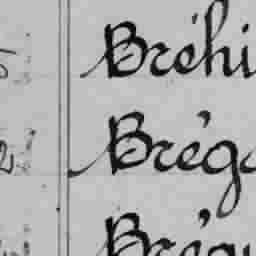 Bréhi
Bréga
Brégu